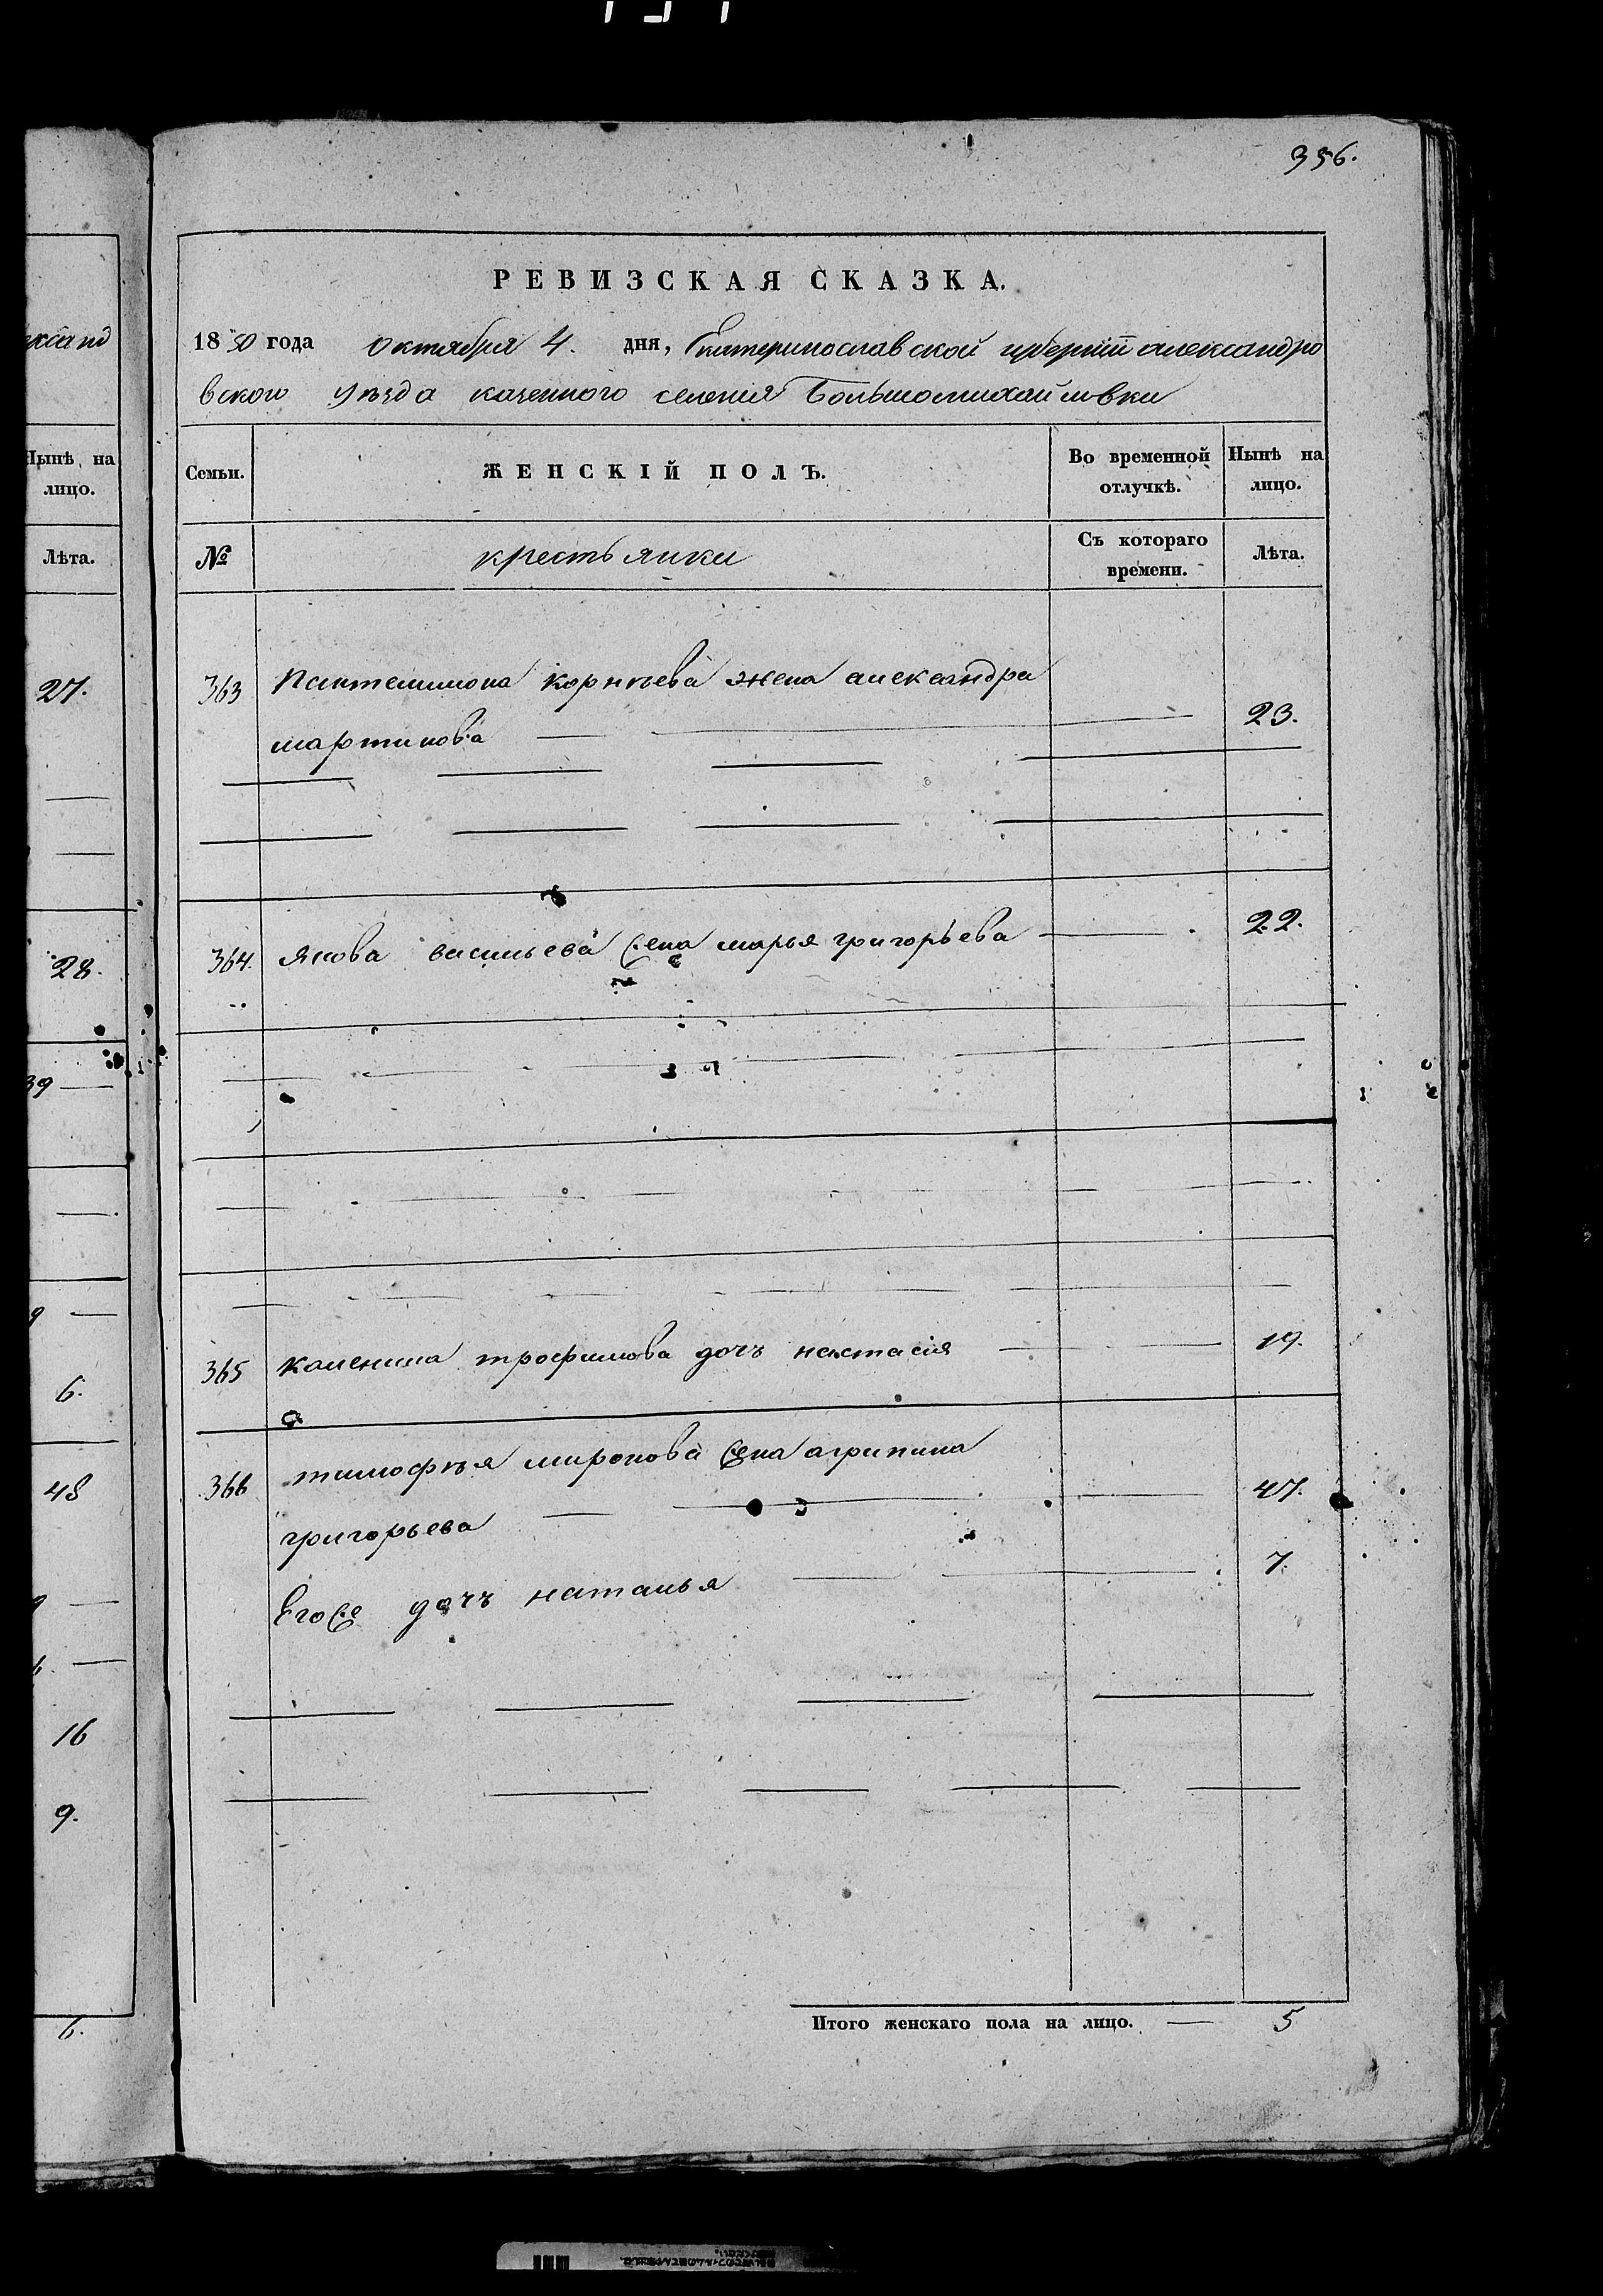 356.
РЕВИЗСКАЯ СКАЗКА.
1850 года октября 4. дня, Екатеринославской губернiи александро
вского уѣзда казенного селения Большомихайловки
Семьи. ЖЕНСКІЙ ПОЛЪ. Во временной отлучкѣ. Нынѣ на лицо.
№ крестьянки Съ котораго времени. Лѣта.
363 Пантелимона корнѣева жена александра
мартинова 23.
364. якова васильева жена марья григорьева 22.
365 каленика трофимова дочъ настасiя 19.
366 тимофѣя миронова жена агрипина
григорьева 47.
Егоже дочъ наталья 7.
Итого женскаго пола на лицо. 5
ександ
Нынѣ на
лицо.
Лѣта.
27.
28.
39
9
6.
48
16
9.
6.